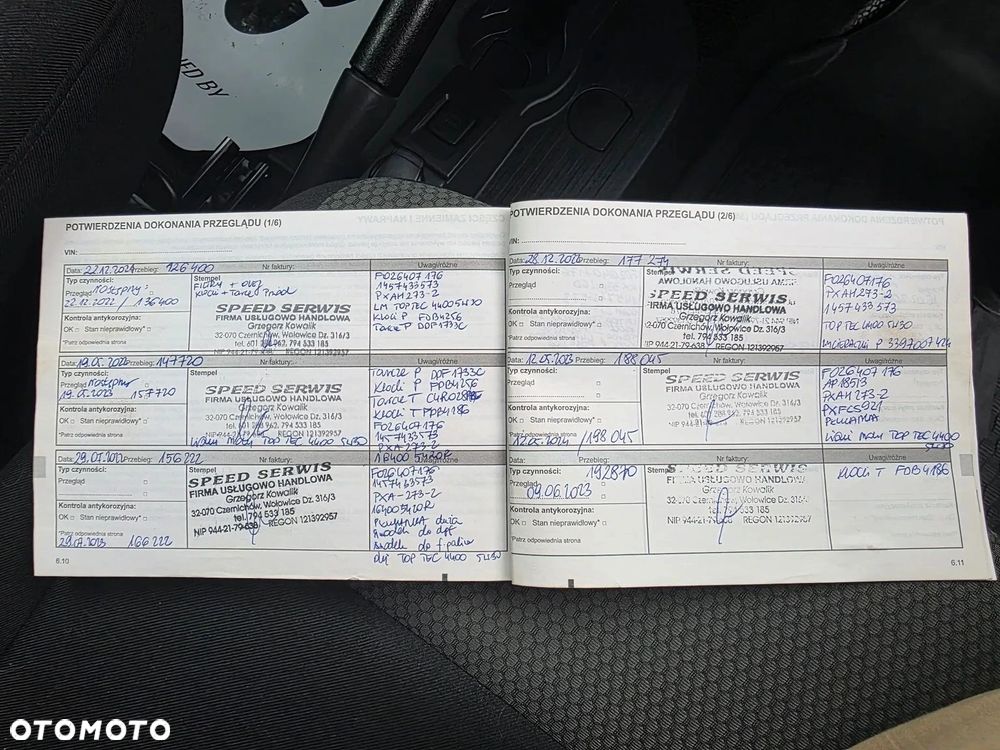 ED BY
POTWIERDZENIA DOKONANIA PRZEGLĄDU (1/6)
VIN:
Data: 22.12.2021 Przebieg: 126400 Nr faktury: Uwagi/różne
Typ czynności: Stempel
Przegląd następny:
22.12.2022 / 136400
Filtry + olej
Klocki + Tarcze Przód
Kontrola antykorozyjna:
OK Stan nieprawidłowy*
*Patrz odpowiednia strona
SPEED SERWIS
FIRMA USŁUGOWO HANDLOWA
Grzegorz Kowalik
32-070 Czernichów, Wołowice Dz. 316/3
tel. 601 288 962, 794 533 185
NIP 944-21-79-638 REGON 121392957
F026407176
1457433573
PXAH273-2
LM TOPTEC 4400 5W30
Klocki P FDB4256
Tarcze P DDF1733C
Data: 19.05.2022 Przebieg: 147720 Nr faktury:
Typ czynności: Stempel
Przegląd następny
19.05.2023 157720
Kontrola antykorozyjna:
OK Stan nieprawidłowy*
*Patrz odpowiednia strona
SPEED SERWIS
FIRMA USŁUGOWO HANDLOWA
Grzegorz Kowalik
32-070 Czernichów, Wołowice Dz. 316/3
tel. 601 288 962, 794 533 185
NIP 944-21-79-638 REGON 121392957
TOP TEC 4400 5W30
Tarcze P DDF1733C
Klocki P FDB4256
Klocki T FDB4186
F026407176
1457433573
PXA273-2
Data: 29.07.2022 Przebieg: 156222 Nr faktury: Uwagi/różne
Typ czynności: Stempel
Przegląd
Kontrola antykorozyjna:
OK Stan nieprawidłowy*
*Patrz odpowiednia strona
29.07.2023 166222
SPEED SERWIS
FIRMA USŁUGOWO HANDLOWA
Grzegorz Kowalik
32-070 Czernichów, Wołowice Dz. 316/3
tel. 794 533 185
NIP 944-21-79-638 REGON 121392957
F026407176
PXA-273-2
środek do dpf
środek do
olej TOP TEC 4400 5W30
6.10
POTWIERDZENIA DOKONANIA PRZEGLĄDU (2/6)
VIN:
Data: 28.12.2022 Przebieg: 177 271 Nr faktury: Uwagi/różne
Typ czynności: Stempel
Przegląd
Kontrola antykorozyjna:
OK Stan nieprawidłowy*
*Patrz odpowiednia strona
SPEED SERWIS
FIRMA USŁUGOWO HANDLOWA
Grzegorz Kowalik
32-070 Czernichów, Wołowice Dz. 316/3
tel. 794 533 185
NIP 944-21-79-638 REGON 121392957
F026407176
PXAH273-2
1457433573
TOP TEC 4400 5W30
Data: 12.05.2023 Przebieg: 188 045 Nr faktury: Uwagi/różne
Typ czynności: Stempel
Przegląd
Kontrola antykorozyjna:
OK Stan nieprawidłowy*
*Patrz odpowiednia strona
12.05.2024 / 198 045
SPEED SERWIS
FIRMA USŁUGOWO HANDLOWA
Grzegorz Kowalik
32-070 Czernichów, Wołowice Dz. 316/3
tel. 601 288 962, 794 533 185
NIP 944-21-79-638 REGON 121392957
F026407176
PXAH273-2
TOP TEC 4400
5W30
Data: Przebieg: 192870 Nr faktury: Uwagi/różne
Typ czynności: Stempel
Przegląd
09.06.2023
Kontrola antykorozyjna:
OK Stan nieprawidłowy*
*Patrz odpowiednia strona
SPEED SERWIS
FIRMA USŁUGOWO HANDLOWA
Grzegorz Kowalik
32-070 Czernichów, Wołowice Dz. 316/3
tel. 794 533 185
NIP 944-21-79-638 REGON 121392957
Klocki T FDB4186
6.11
OTOMOTO